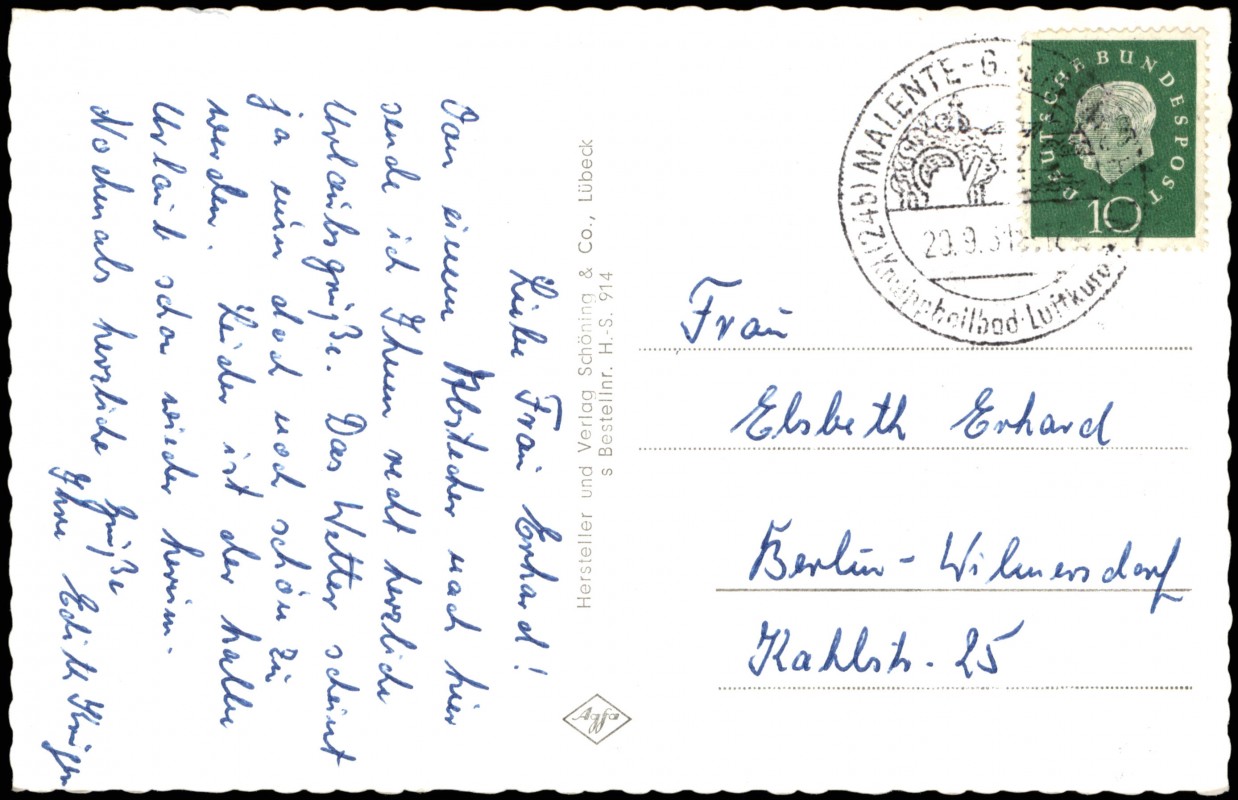 Liebe Frau Erhard!
Von einem Abstecher nach hier
sende ich Ihnen recht herzliche
Urlaubsgrüße. Das Wetter scheint
ja nun doch noch schön zu
werden. Leider ist der halbe
Urlaub schon wieder herum.
Nochmals herzliche Grüße
Ihre Edith
Hersteller und Verlag Schöning & Co., Lübeck
s Bestellnr. H.-S. 914
Agfa
(24b) MALENTE-G
Kneippheilbad-Luftkuro
DEUTSCHE BUNDESPOST
10
Frau
Elsbeth Erhard
Berlin-Wilmersdorf
Kahlstr. 25